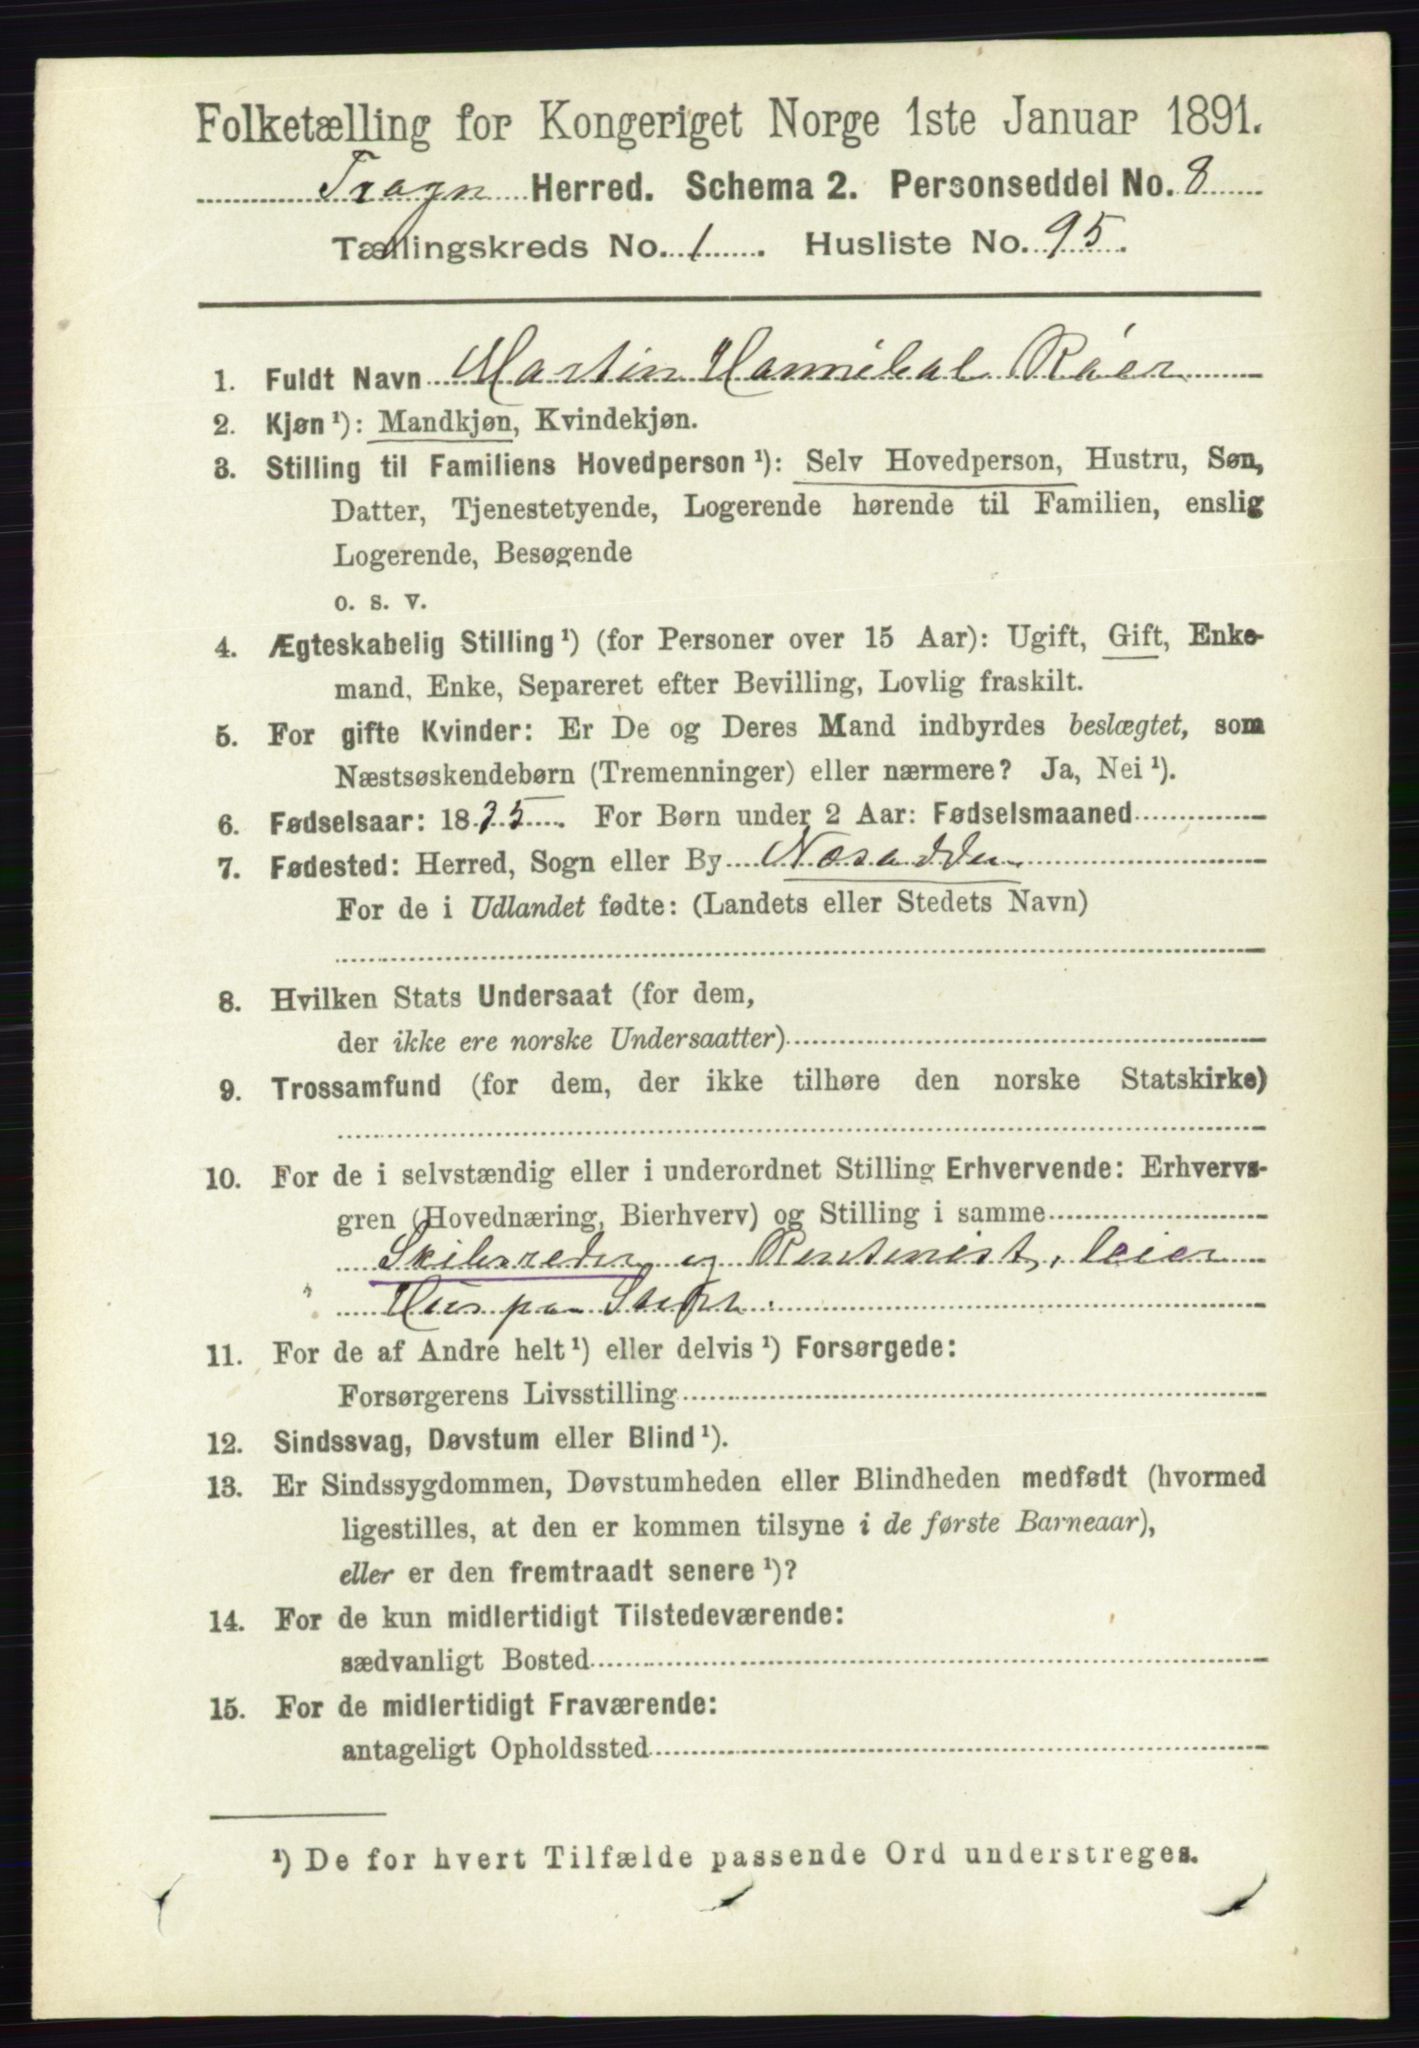 Folketælling for Kongeriget Norge 1ste Januar 1891.
Frogn Herred. Schema 2. Personseddel No. 8
Tællingskreds No. 1. Husliste No. 95.
1. Fuldt Navn Martin Hannibal Röer
2. Kjøn ¹): Mandkjøn, Kvindekjøn.
3. Stilling til Familiens Hovedperson ¹): Selv Hovedperson, Hustru, Søn,
Datter, Tjenestetyende, Logerende hørende til Familien, enslig
Logerende, Besøgende
o. s. v.
4. Ægteskabelig Stilling ¹) (for Personer over 15 Aar): Ugift, Gift, Enke-
mand, Enke, Separeret efter Bevilling, Lovlig fraskilt.
5. For gifte Kvinder: Er De og Deres Mand indbyrdes beslægtet, som
Næstsøskendebørn (Tremenninger) eller nærmere? Ja, Nei ¹).
6. Fødselsaar: 18 For Børn under 2 Aar: Fødselsmaaned
7. Fødested: Herred, Sogn eller By Næsodden
For de i Udlandet fødte: (Landets eller Stedets Navn)
8. Hvilken Stats Undersaat (for dem,
der ikke ere norske Undersaatter)
9. Trossamfund (for dem, der ikke tilhøre den norske Statskirke)
10. For de i selvstændig eller i underordnet Stilling Erhvervende: Erhvervs-
gren (Hovednæring, Bierhverv) og Stilling i samme
Skibsreder og Rentenist, leier
Hus paa
11. For de af Andre helt ¹) eller delvis ¹) Forsørgede:
Forsørgerens Livsstilling
12. Sindssvag, Døvstum eller Blind ¹).
13. Er Sindssygdommen, Døvstumheden eller Blindheden medfødt (hvormed
ligestilles, at den er kommen tilsyne i de første Barneaar),
eller er den fremtraadt senere ¹)?
14. For de kun midlertidigt Tilstedeværende:
sædvanligt Bosted
15. For de midlertidigt Fraværende:
antageligt Opholdssted
¹) De for hvert Tilfælde passende Ord understreges.